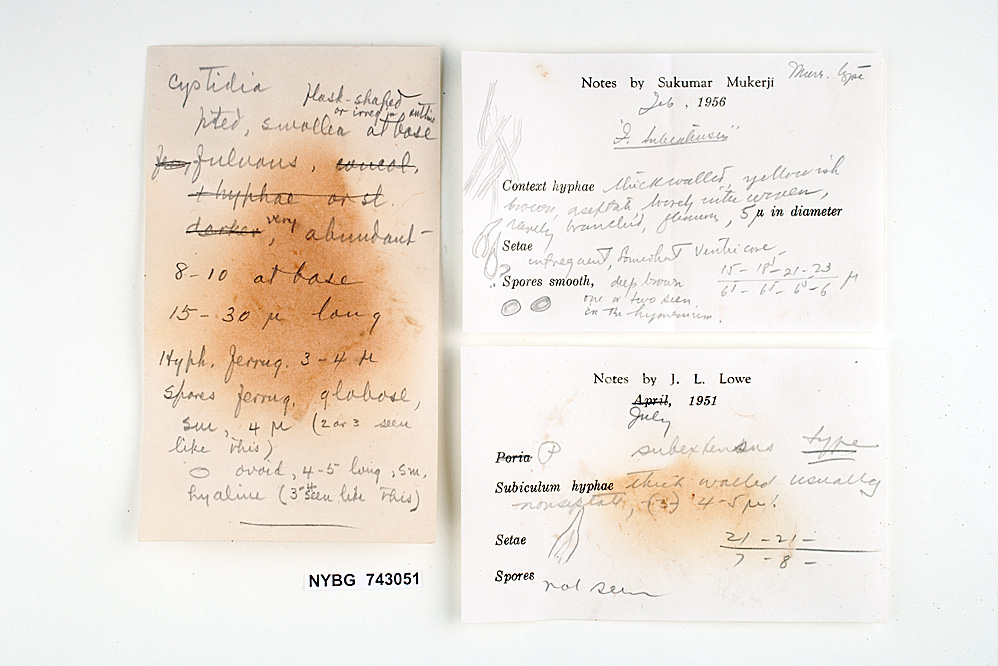 Cystidia
flask-shaped
or irreg. in outline
pted, swollen at base
fulvous, conical,
+ hyphae or st.
darker, very abundant
8-10 at base
15-30 µ long
Hyph. ferrug. 3-4 µ
Spores ferrug. globose,
sm, 4 µ (2 or 3 seen
like this)
ovoid, 4-5 long, sm,
hyaline (3-4 seen like this)
NYBG 743051
Murr. type
Notes by Sukumar Mukerji
Feb, 1956
"F. subextensus"
Context hyphae thickwalled, yellowish
brown, aseptate loosely interwoven,
rarely branched, flexuous, 5 µ in diameter
Setae infrequent, somewhat ventricose
Spores smooth, deep brown
one or two seen
in the hymenium.
15-18-21-23
6-6-6-6 µ
Notes by J. L. Lowe
April, 1951
July
Poria P subextensus type
Subiculum hyphae thick walled usually
nonseptate, (3) 4-5 µ.
Setae 21-21-
7-8-
Spores not seen